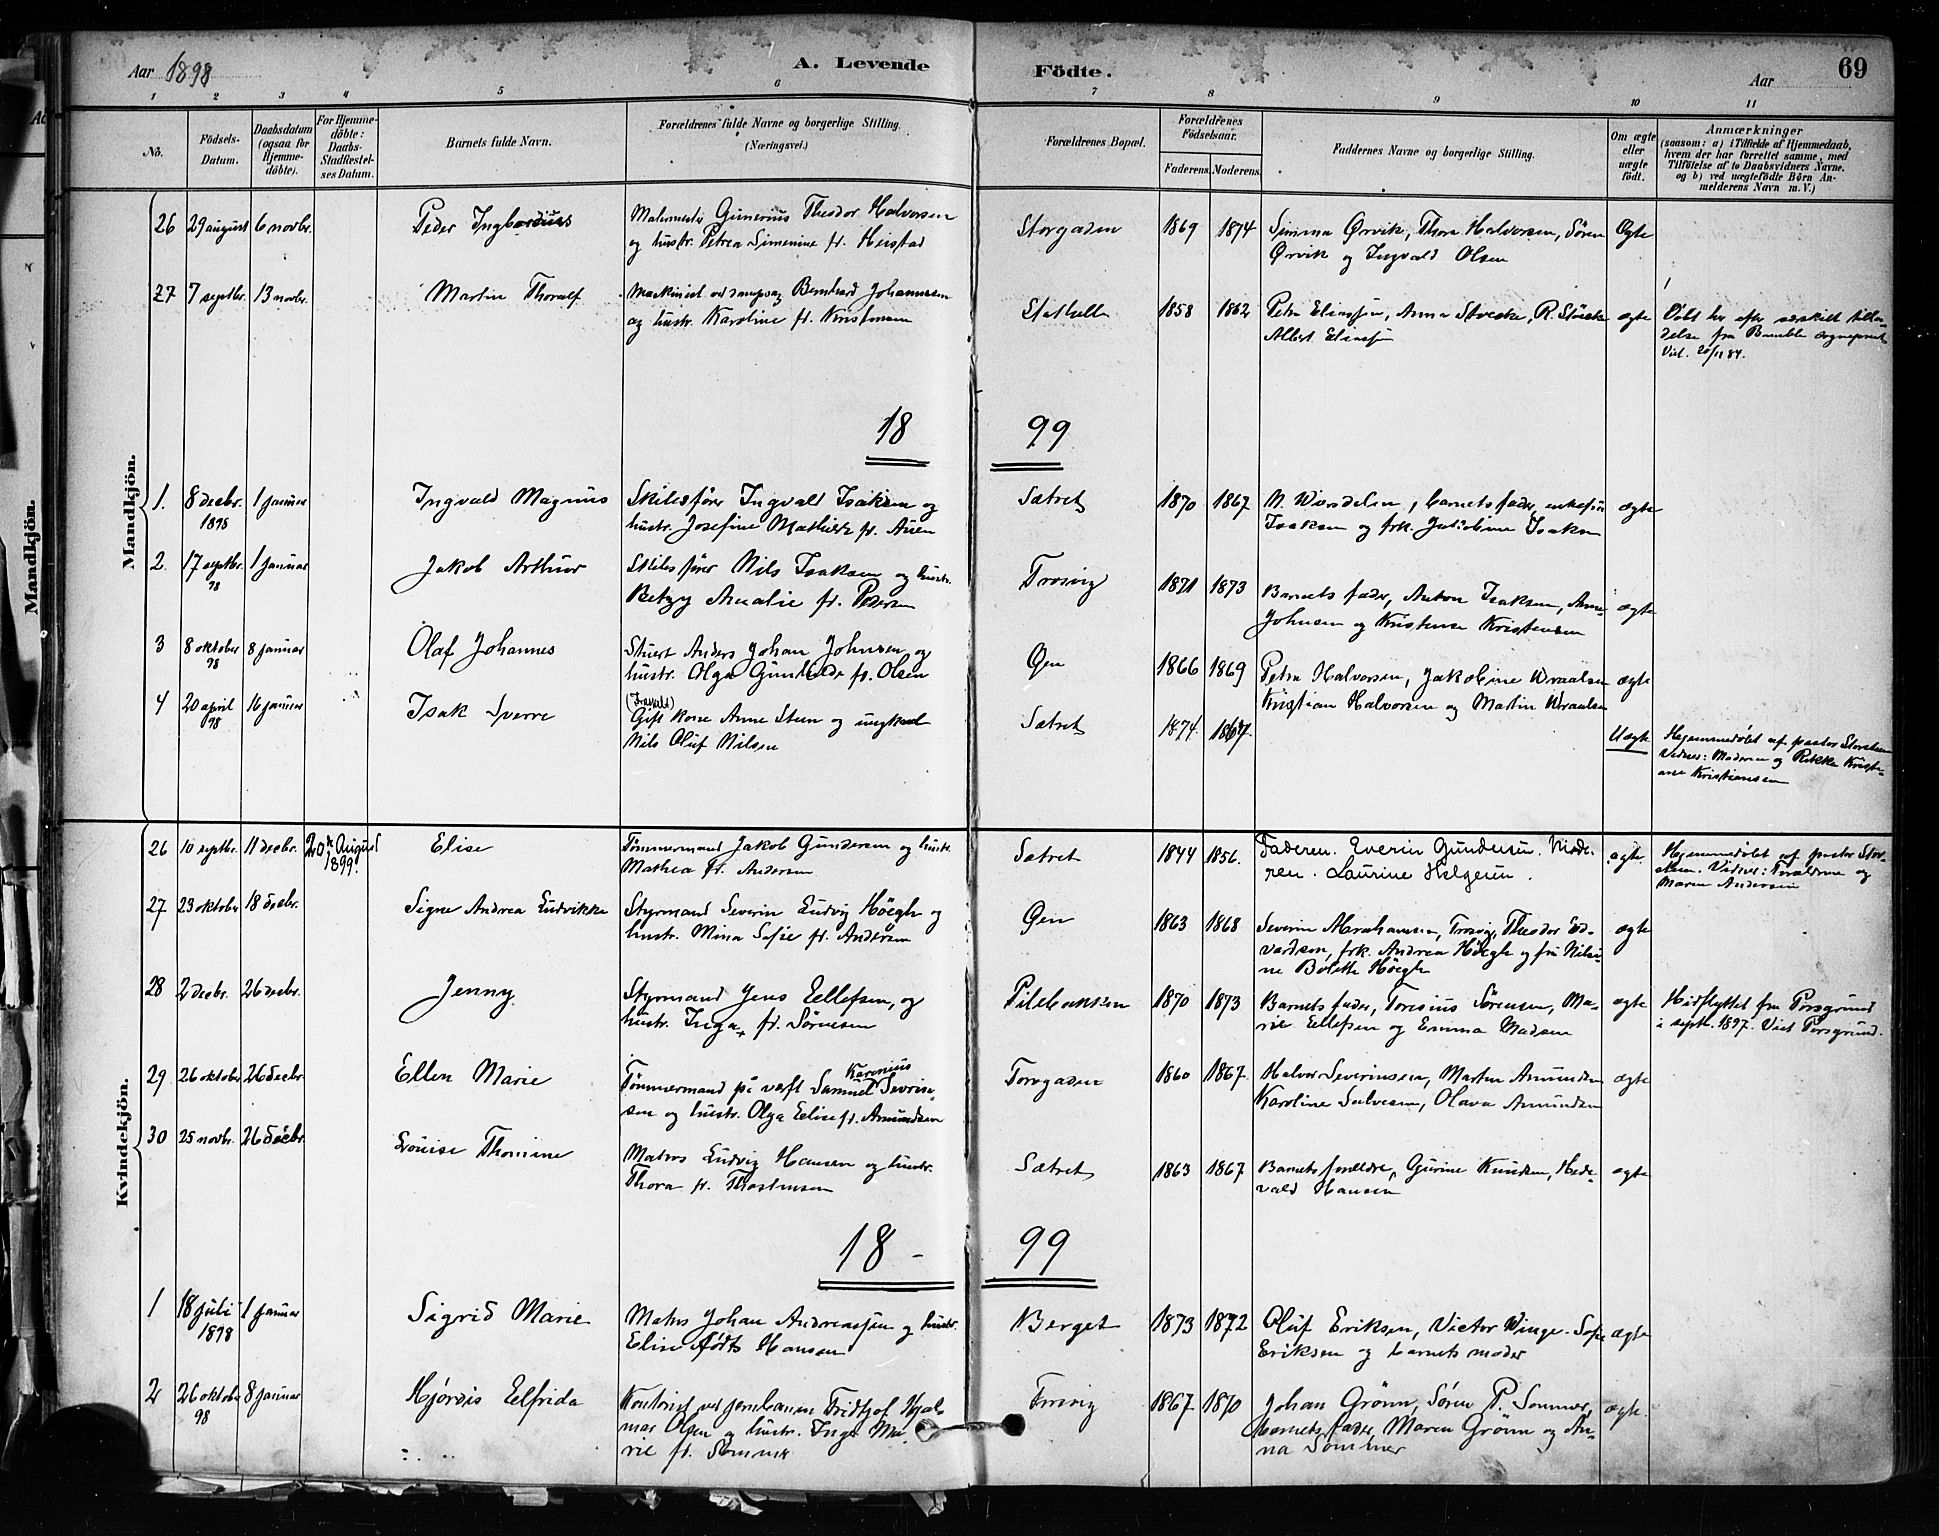 Aar 1898
A. Levende
Födte.
Aar
69
1 2 3 4 5 6 7 8 9 10 11
No.
Födsels-
Datum.
Daabsdatum
(ogsaa for
Hjemme-
döbte).
For Hjemme-
döbte:
Daabs-
Stadfæstel-
ses Datum.
Barnets fulde Navn.
Forældrenes fulde Navne og borgerlige Stilling.
(Næringsvei.)
Forældrenes Bopæl.
Forældrenes
Födselsaar.
Faderens. Moderens.
Faddernes Navne og borgerlige Stilling.
Om ægte
eller
uægte
födt.
Anmærkninger
(saasom: a) i Tilfælde af Hjemmedaab,
hvem der har forrettet samme, med
Tilföielse af to Daabsvidners Navne,
og b) ved uægtefödte Börn An-
melderens Navn m. V.)
Mandkjön.
Mandkjön.
26 29 august 6 novbr. Peder Ingbordius
Gunerius Theodor Halvorsen
og hustr. Petrea Simenine f. Heistad
Storgaden 1869 1874
Simma Ørvik, Thora Halvorsen, Sören
Ørvik og Ingvald Olsen
Ægte
27 7 septbr. 13 novbr. Martin Thoralf
Maskinist ved dampsag Bernhard Johannssen
og hustr. Karoline f. Kristensen
Stathelle 1858 1862
Petra Eliassen, Anna
Albert Eliassen
ægte
Döbt her efter særskilt tilla-
delse fra Bamble sognepræst
18 99
1. 8 decbr. 1898 1 januar Ingvald Magnus
Skibsförer Ingvald Isaksen og
hustr. Josefine Mathilde f.
Sætret 1870 1867
barnets fader, enkefru
Isaksen og frk. Jakobine Isaksen
ægte
2. 17 septbr. 98 1 januar Jakob Arthur
Skibsförer Nils Isaksen og hustr.
Betzy Amalie f. Pedersen
Trosvig 1871 1873
Barnets fader, Anton Isaksen, Anne
Johnsen og Kristense Kristensen
ægte
3 8 oktober 98 8 januar Olaf Johannes
Stuert Anders Johan Johnsen og
hustr. Olga Gunhilde f. Olsen
Øen 1866 1869
Petra Halvorsen, Jakobine Wraalsen
Kristian Halvorsen og Martin Wraalsen
ægte
4 20 april 98 16 januar Isak Sverre
(Fraskilt)
Gift kone Anne Steen og ungkarl
Nils Oluf Nilsen
Sætret 1874. 1867.
Uægte
Hjemmedöbt af pastor Storsteen
Vidner: Moderen og Rikka Kristi-
ane Kristiansen
Kvindekjön.
26 10 septbr. 11 decbr. 20de August 1899. Elise
Tömmermand Jakob Gundersen og hustr.
Mathea f. Andersen
Sætret 1844 1856.
Faderen. Everin Gundersen. Mode-
ren. Laurine Helgesen.
ægte.
Hjemmedöbt af pastor Stor-
steen. Vidner: Forældrene og
Maren Andersen
27 23 oktober 18 decbr. Signe Andrea Ludvikke
Styrmand Severin Ludvig Höegh og
hustr. Mina Sofie f. Andersen
Øen 1863 1868
Severin Abrahamsen, Trosvig, Theodor Ed-
vardsen, frk. Andrea Höegh og fru Nilsi-
ne Bolette Höegh
ægte
28 2 decbr. 26 decbr. Jenny
Styrmand Jens Eellefsen, og
hustr. Inga f. Sörensen
Pilebakken 1870 1873
Barnets fader, Toresius Sörensen, Ma-
rie Eellefsen og Emma Madsen
ægte
Hidflyttet fra Porsgrund
i septbr. 1897. Vist Porsgrund.
29 26 oktober 26 decbr. Ellen Marie
Karenius
Tömmermand på værft Samuel Severin-
sen og hustr. Olga Eelise f. Amundsen
Torvgaden 1860 1867.
Halvor Severinsen, Martin Amundsen
Karoline Salvesen, Olava Amundsen
ægte
30 25 novbr. 26 decbr. Louise Thomine
Matros Ludvig Hansen og hustr.
Thora f. Thorstensen
Sætret 1863 1867
Barnets forældre, Gurine Knudsen, Hede-
vald Hansen
ægte
18 - 99
1 18 juli 1898 1 januar Sigrid Marie
Matros Johan Andreassen og hustr.
Elise födt Hansen
Berget 1873 1872
Oluf Eriksen, Victor Winge. Sofie
Eriksen og barnets moder
ægte
2 26 oktober 98 8 januar Hjördis Eelfrida
Kontorist ved jernbanen Fridtjof Hjal-
mar Olsen og hustr. Inga Ma-
rie f. Sommer
Trosvig 1867. 1870
Johan Grönn, Sören P. Sommer,
barnets fader, Maren Grönn og An-
na Sommer
ægte.